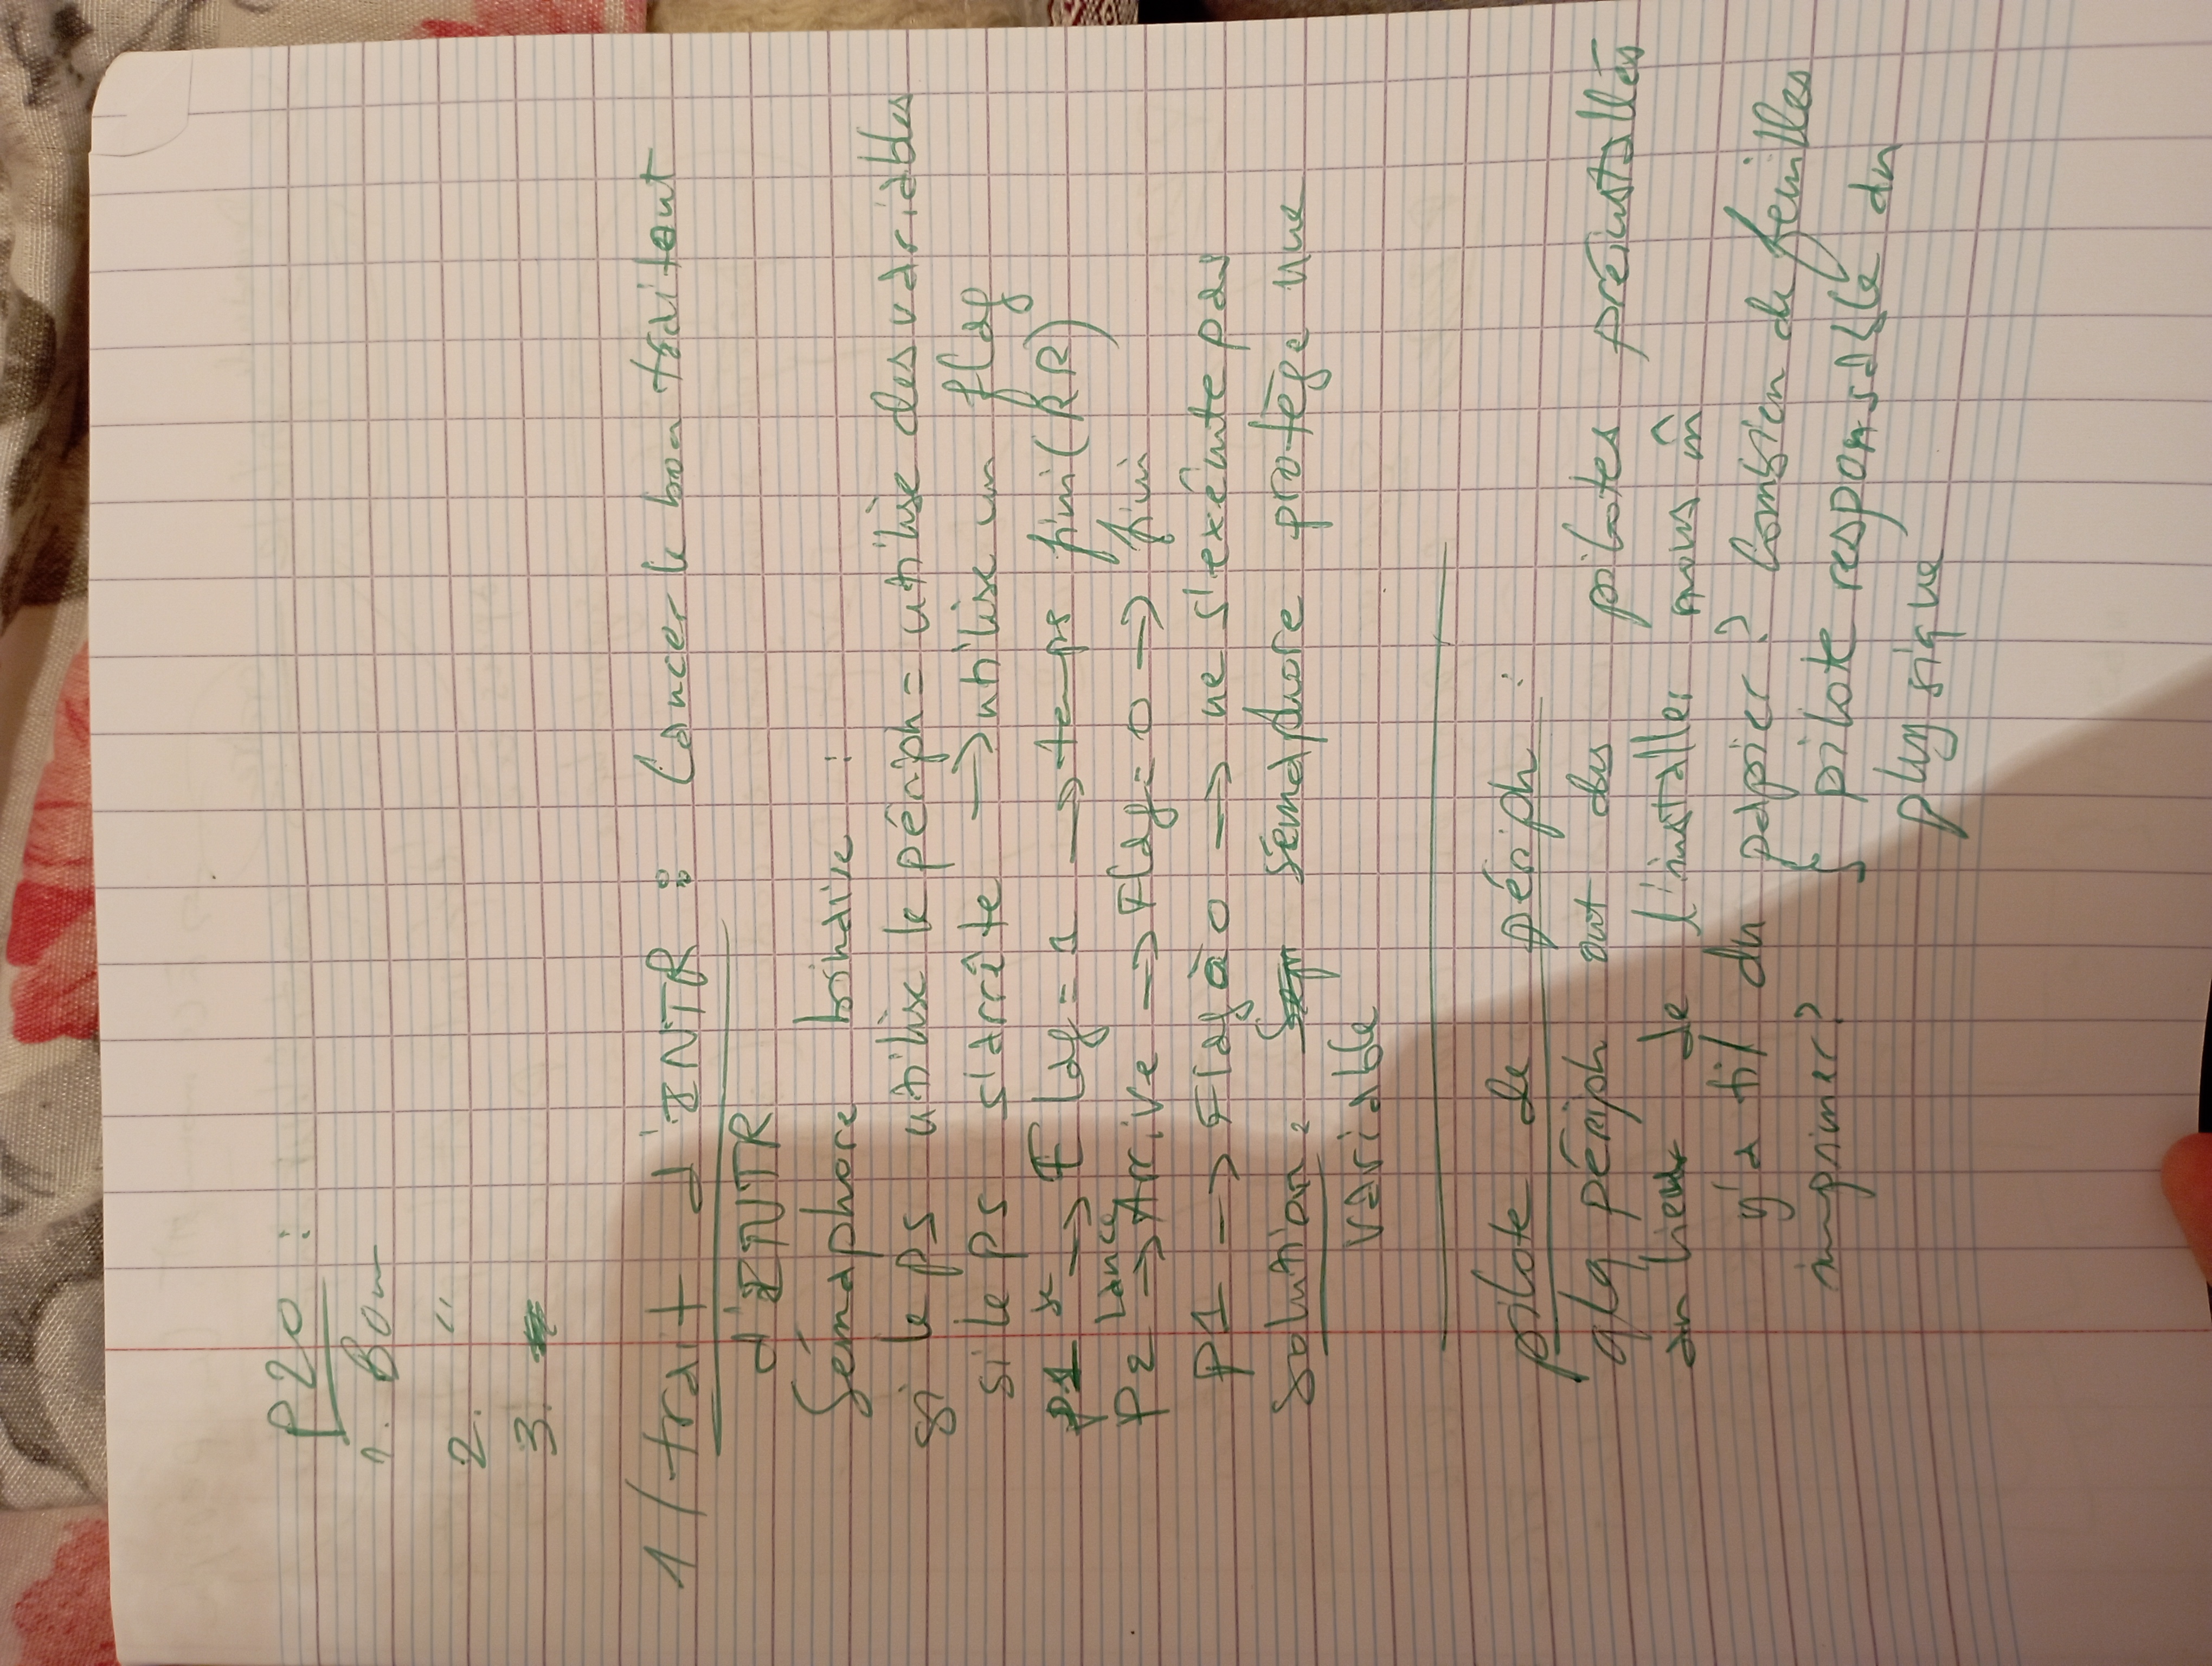 P20 :
1. Bon
2. "
3.
1/ trait d'INTR : Lancer le bon traitant
d'INTR
Sémaphore binaire :
si le ps utilise le périph = utilise des variables
si le ps s'arrête → utilise un flag
P1 → Flag = 1 → temps fini (RR)
Lancé
P2 → Arrive → Flag = 0 → fin
P1 → Flag à 0 → ne s'exécute pas
Solution : sémaphore protège une
variable
pilote de périph :
qlq périph ont des pilotes préinstallés
au lieu de l'installer mais m̂
y'a til du papier ? Combien de feuilles
imprimer ? } pilote responsable du
physique